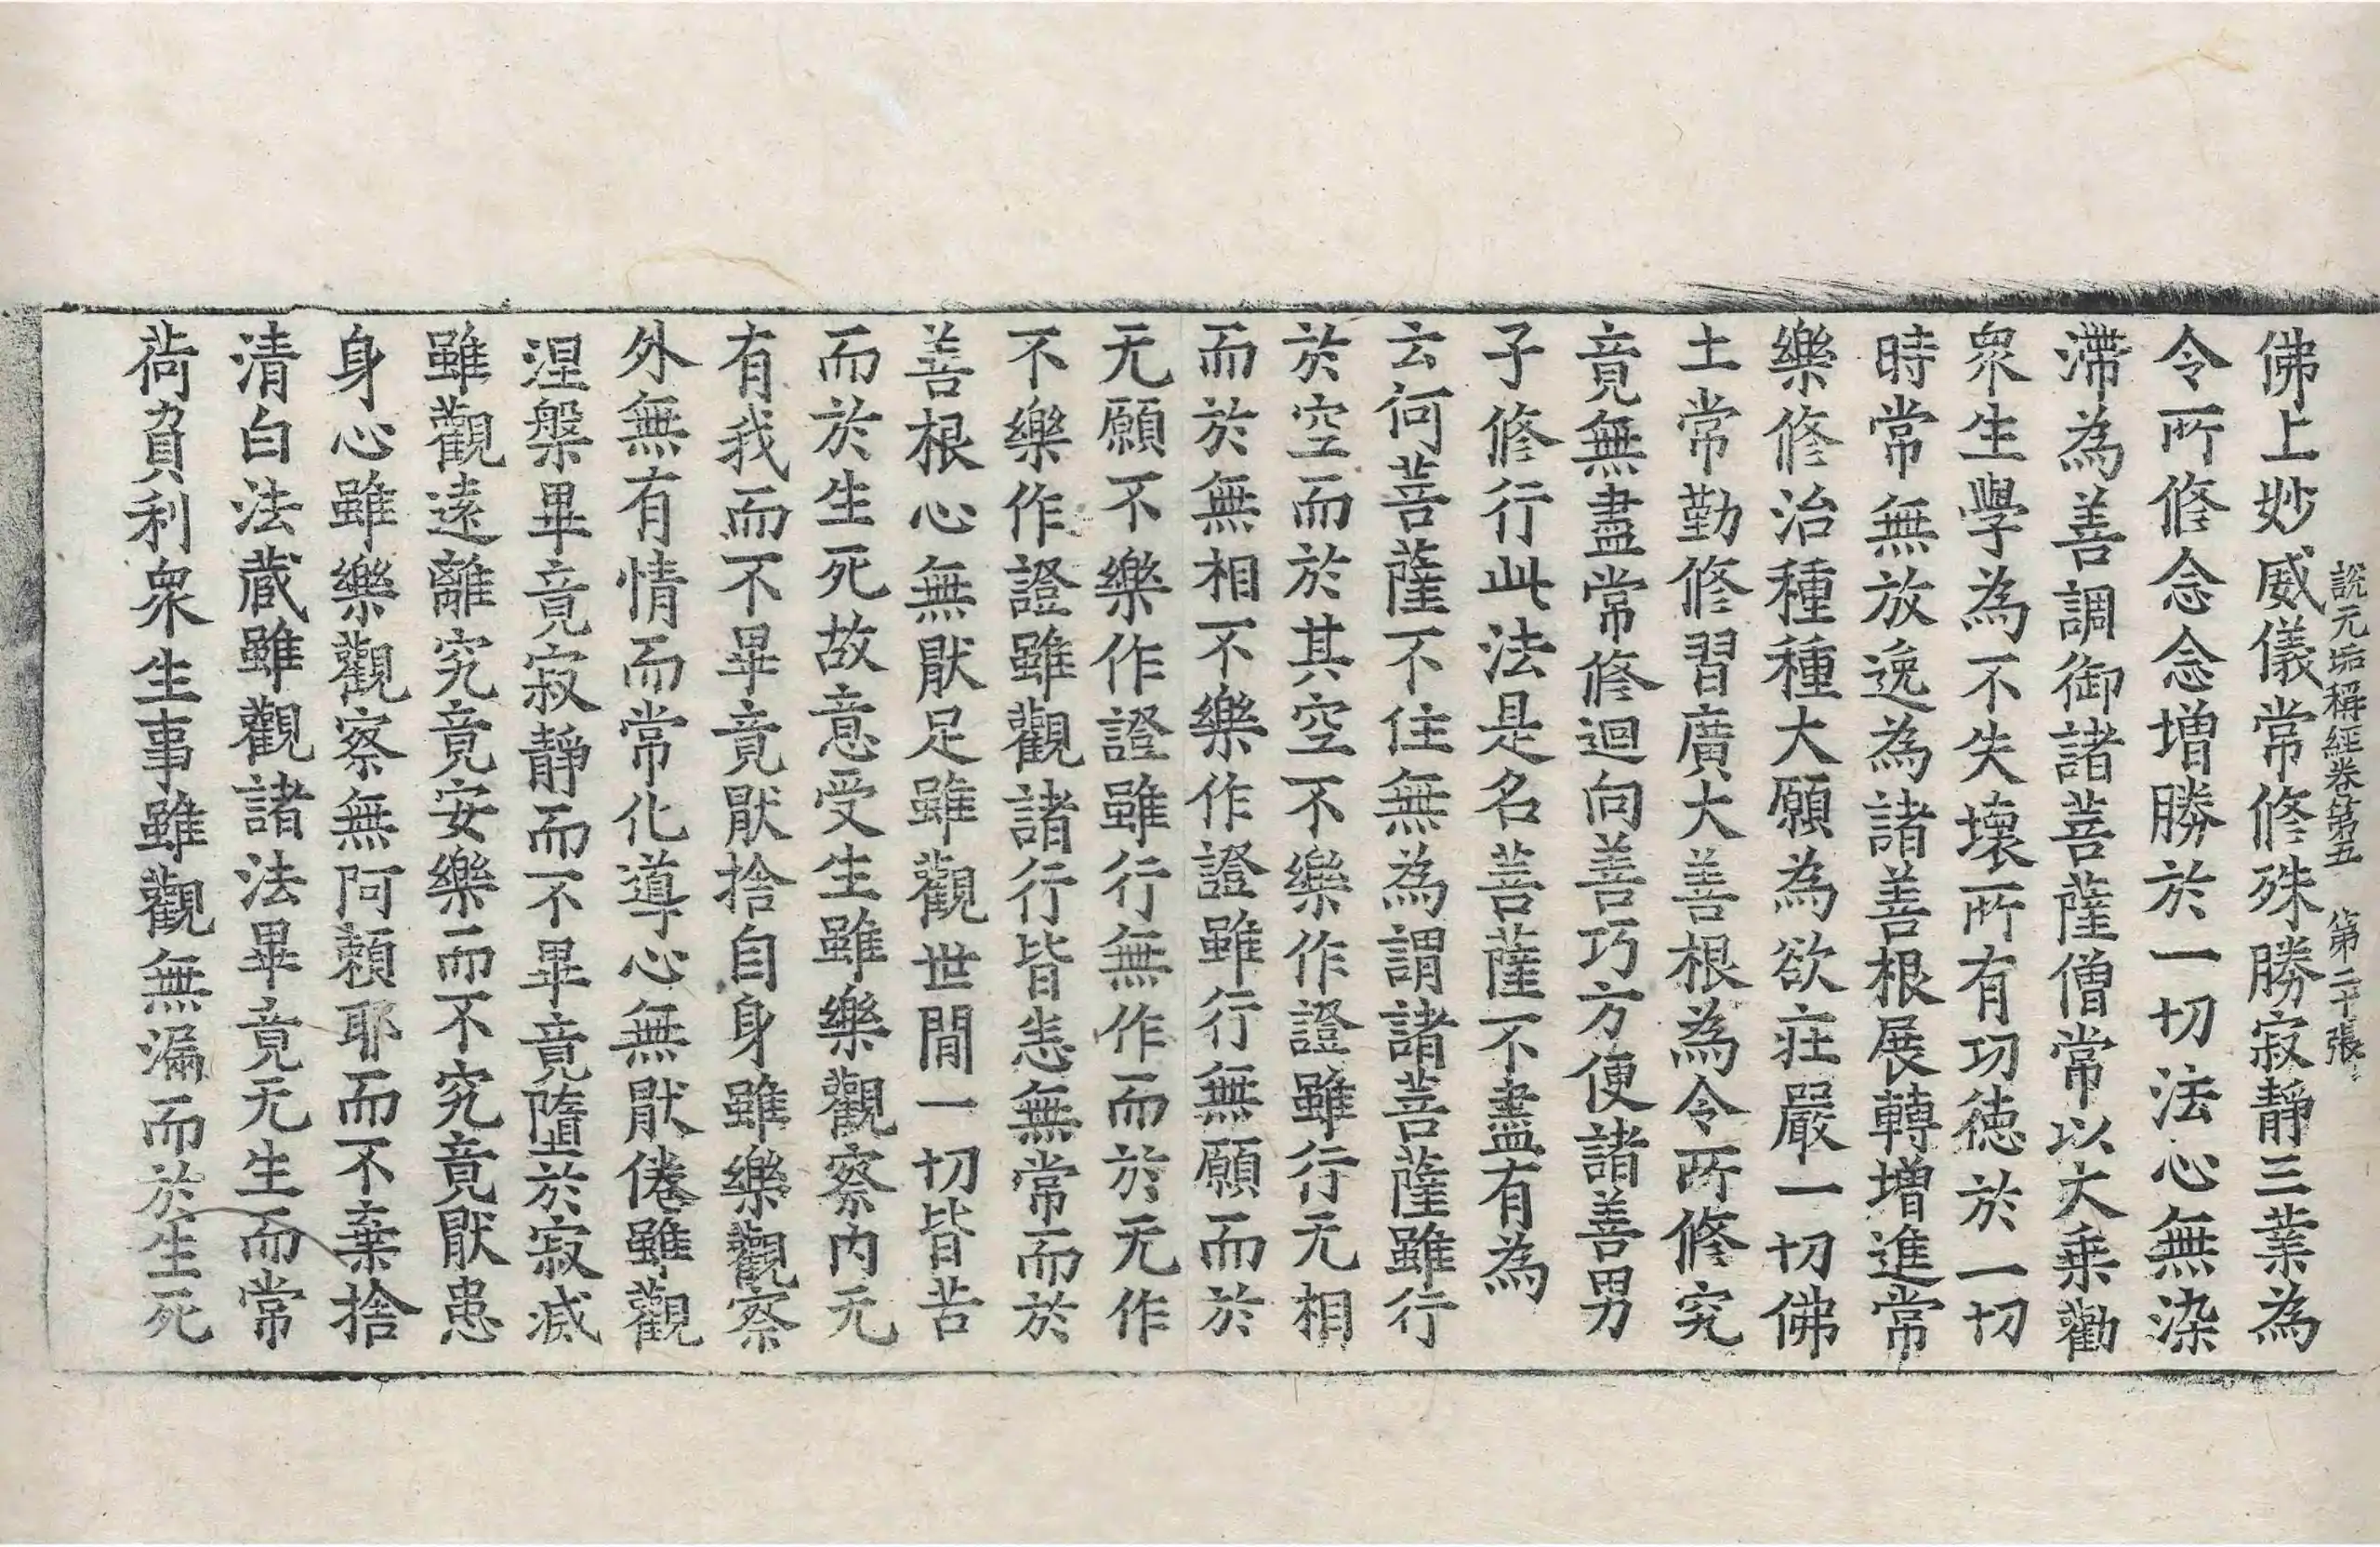 說无垢稱經卷第五 第二十張
佛上妙威儀常修殊勝寂靜三業為
令所修念念增勝於一切法心無染
滯為善調御諸菩薩僧常以大乘勸
衆生學為不失壞所有功徳於一切
時常無放逸為諸善根展轉增進常
樂修治種種大願為欲莊嚴一切佛
土常勤修習廣大善根為令所修究
竟無盡常修迴向善巧方便諸善男
子修行此法是名菩薩不盡有為
云何菩薩不住無為謂諸菩薩雖行
於空而於其空不樂作證雖行无相
而於無相不樂作證雖行無願而於
无願不樂作證雖行無作而於无作
不樂作證雖觀諸行皆悉無常而於
善根心無厭足雖觀世間一切皆苦
而於生死故意受生雖樂觀察内无
有我而不畢竟厭捨自身雖樂觀察
外無有情而常化導心無厭倦雖觀
涅槃畢竟寂靜而不畢竟墮於寂滅
雖觀遠離究竟安樂而不究竟厭患
身心雖樂觀察無阿賴耶而不棄捨
清白法蔵雖觀諸法畢竟无生而常
荷負利衆生事雖觀無漏而於生死